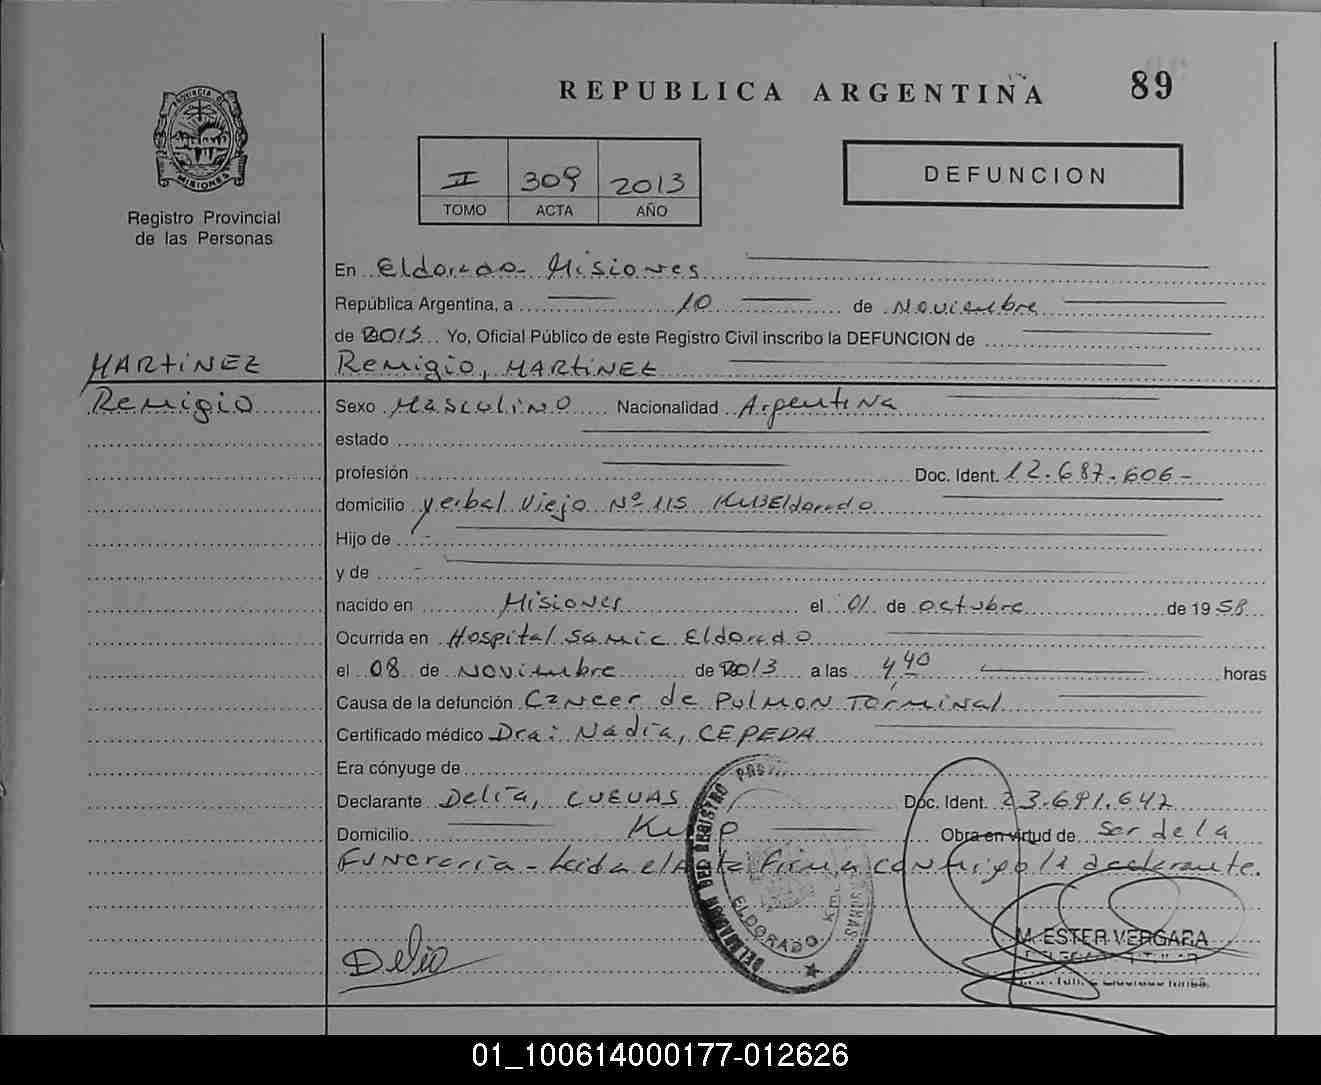 REPUBLICA ARGENTINA
89
PROVINCIA D
MISIONES
Registro Provincial
de las Personas
II 309 2013
TOMO ACTA AÑO
DEFUNCION
En Eldorado Misiones
República Argentina, a 10 de Noviembre
de 2013 Yo, Oficial Público de este Registro Civil inscribo la DEFUNCION de
MARTINEZ
Remigio, MARTINEZ
Remigio
Sexo Masculino Nacionalidad Argentina
estado
profesión Doc. Ident. 12.687.606-
domicilio yerbal Viejo Nº 115 Eldorado
Hijo de
y de
nacido en Misiones el 01 de octubre de 1958
Ocurrida en Hospital Samic Eldorado
el 08 de Noviembre de 2013 a las 4,40 horas
Causa de la defunción Cancer de Pulmon Terminal
Certificado médico Dra: Nadia, CEPEDA
Era cónyuge de
Declarante Delia, CUEVAS Doc. Ident. 23.691.642
Domicilio Obra en virtud de Ser de la
Funeraria - Leida el Acta Firma conmigo la
DEL REGISTRO
ELDORADO Km.
Delia
M. ESTER VERGARA
01_100614000177-012626